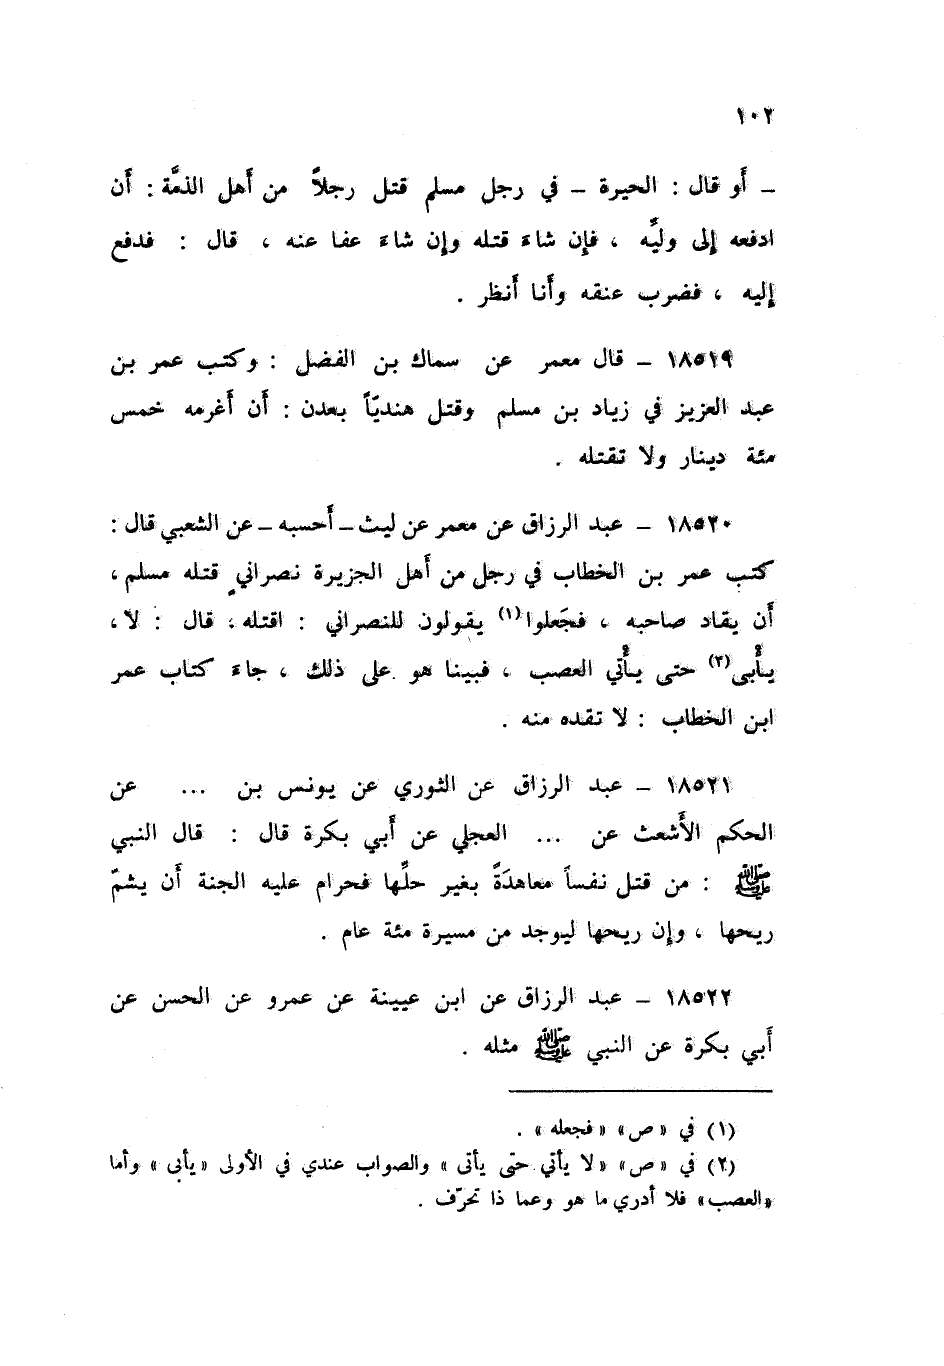 ١٠٢
ـ أَو قال : الحيرة ـ في رجل مسلم قتل رجلاً من أَهل الذمَّة : أَن
ادفعه إِلى وليِّه ، فإِن شاءَ قتله وإِن شاءَ عفا عنه ، قال : فدفع
إِليه ، فضرب عنقه وأَنا أَنظر .
١٨٥١٩ ـ قال معمر عن سماك بن الفضل : وكتب عمر بن
عبد العزيز في زياد بن مسلم وقتل هنديّاً بعدن : أَن أَغرمه خمس
مئة دينار ولا تقتله .
١٨٥٢٠ ـ عبد الرزاق عن معمر عن ليث ـ أَحسبه ـ عن الشعبي قال :
كتب عمر بن الخطاب في رجل من أَهل الجزيرة نصراني قتله مسلم ،
أَن يقاد صاحبه ، فجَعلوا(١) يقولون للنصراني : اقتله ، قال : لا ،
يأْبى(٢) حتى يأْتي العصب ، فبينا هو على ذلك ، جاءَ كتاب عمر
ابن الخطاب : لا تقده منه .
١٨٥٢١ ـ عبد الرزاق عن الثوري عن يونس بن ... عن
الحكم الأَشعث عن ... العجلي عن أَبي بكرة قال : قال النبي
ﷺ : من قتل نفساً معاهدَةً بغير حلِّها فحرام عليه الجنة أَن يشمّ
ريحها ، وإِن ريحها ليوجد من مسيرة مئة عام .
١٨٥٢٢ ـ عبد الرزاق عن ابن عيينة عن عمرو عن الحسن عن
أَبي بكرة عن النبي ﷺ مثله .
(١) في «ص» «فجعله» .
(٢) في «ص» «لا يأتي حتى يأتى» والصواب عندي في الأولى «يأبى» وأما
«العصب» فلا أدري ما هو وعما ذا تحرّف .